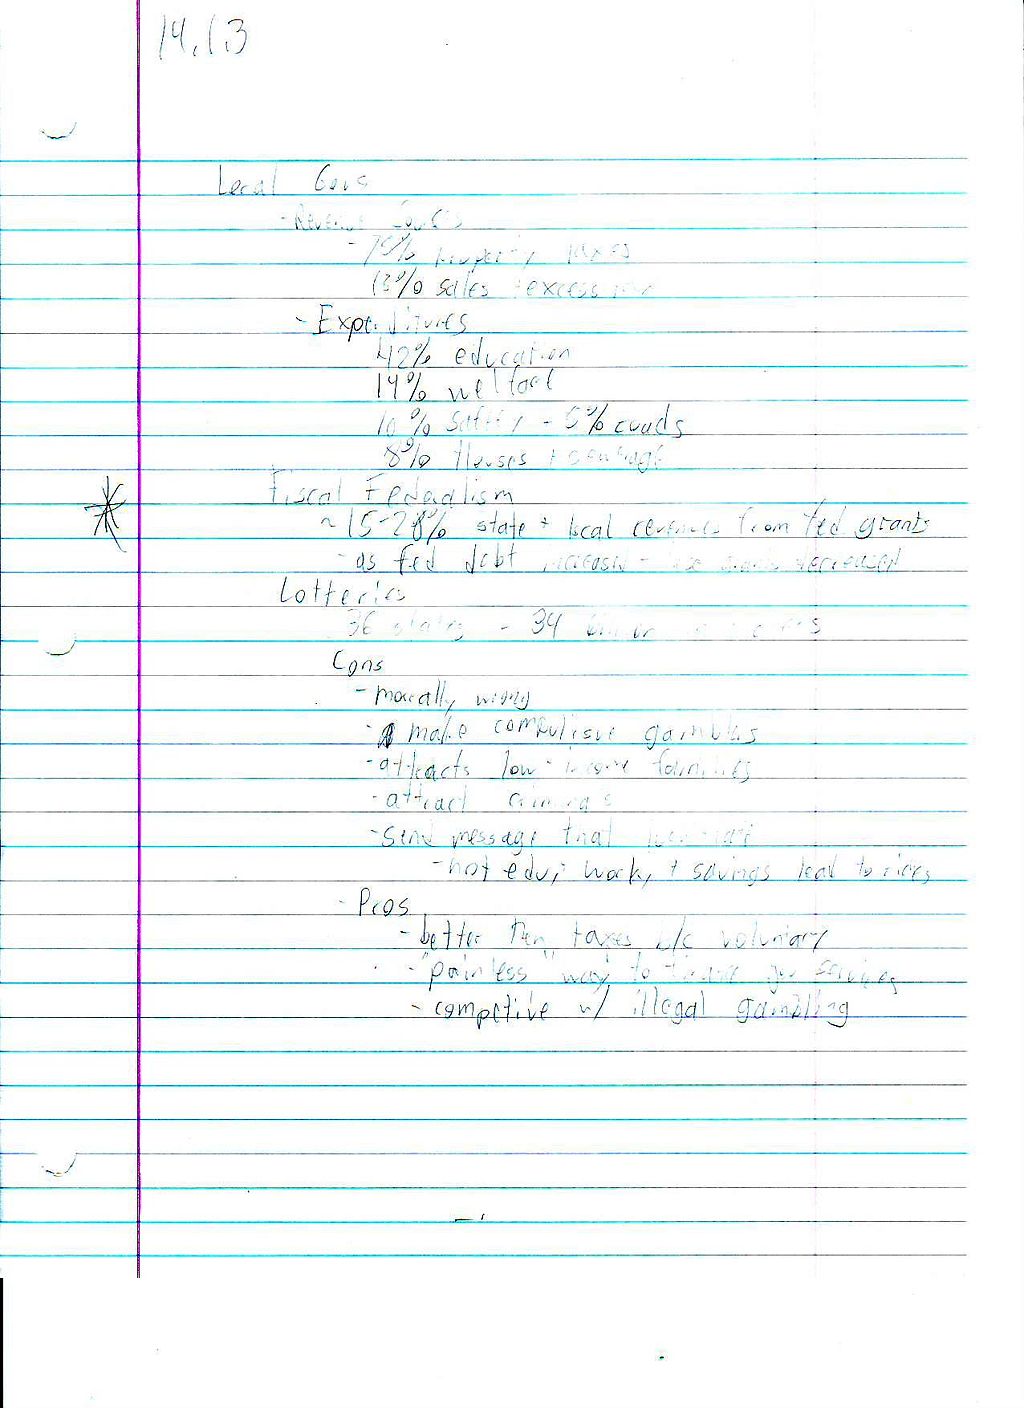 14.1.3
Local Govs
- Revenue
- 75% property taxes
13% sales + excess
- Expenditures
42% education
14% welfare
10% safety - 5% roads
8% Houses + sewage
Fiscal Federalism
~15-20% state + local revenues from fed grants
- as fed debt - decreased
Lotteries
36 states - 34
Cons
- morally wrong
- make compulisve gamblers
- attracts low-income families
- attract criminals
- send message that
- not edu, work, + savings lead to riches
- Pros
- better then taxes b/c voluntary
- "painless" way to finance gov services
- competive w/ illegal gambling